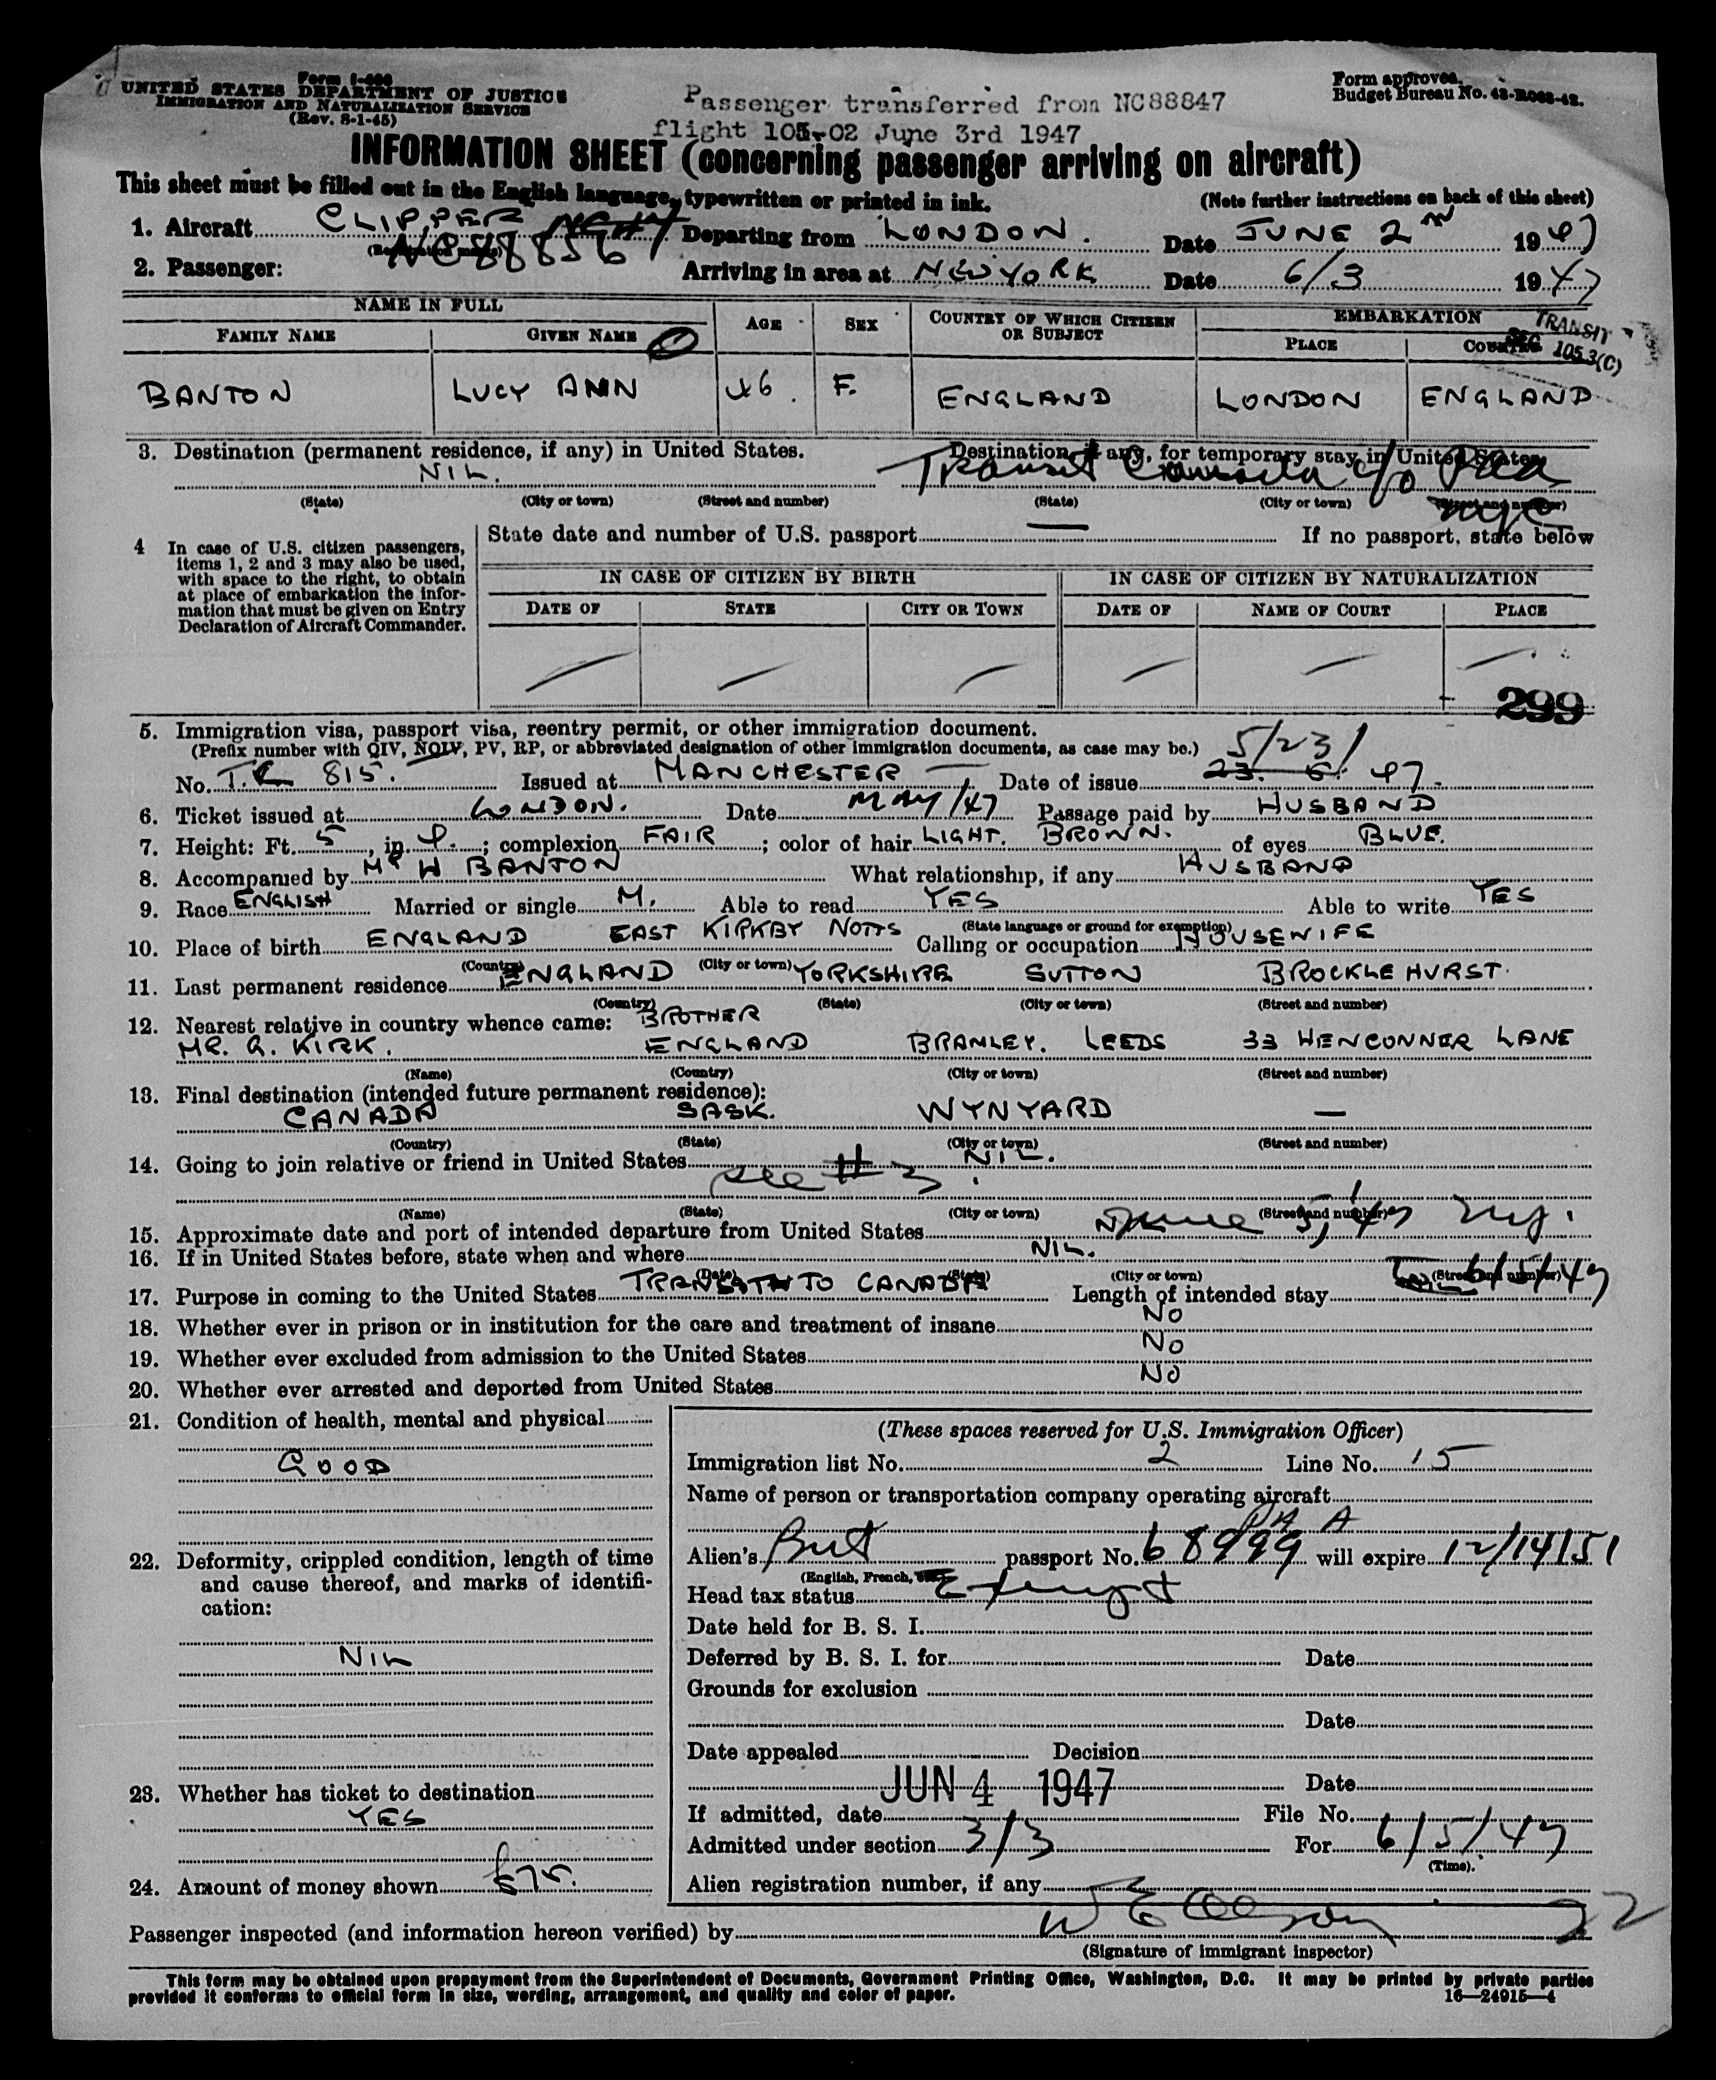 Form I-466
UNITED STATES DEPARTMENT OF JUSTICE
IMMIGRATION AND NATURALIZATION SERVICE
(Rev. 8-1-45)
Passenger transferred from NC88847
flight 105-02 June 3rd 1947
Form approved.
Budget Bureau No. 43-R063-42.
INFORMATION SHEET (concerning passenger arriving on aircraft)
This sheet must be filled out in the English language, typewritten or printed in ink.
(Note further instructions on back of this sheet)
1. Aircraft CLIPPER Departing from LONDON. Date JUNE 2nd 1947
NC88856
2. Passenger: Arriving in area at NEW YORK Date 6/3 1947
NAME IN FULL AGE SEX COUNTRY OF WHICH CITIZEN OR SUBJECT EMBARKATION
TRANSIT
SEC 105.3(C)
FAMILY NAME GIVEN NAME PLACE COUNTRY
BANTON LUCY ANN 46. F. ENGLAND LONDON ENGLAND
3. Destination (permanent residence, if any) in United States. Destination, if any, for temporary stay in United States
NIL. Transit Canada c/o PAA
NYC
(State) (City or town) (Street and number) (State) (City or town) (Street and number)
4 In case of U.S. citizen passengers, items 1, 2 and 3 may also be used, with space to the right, to obtain at place of embarkation the information that must be given on Entry Declaration of Aircraft Commander.
State date and number of U.S. passport — If no passport, state below
IN CASE OF CITIZEN BY BIRTH IN CASE OF CITIZEN BY NATURALIZATION
DATE OF STATE CITY OR TOWN DATE OF NAME OF COURT PLACE
299
5. Immigration visa, passport visa, reentry permit, or other immigration document.
(Prefix number with QIV, NQIV, PV, RP, or abbreviated designation of other immigration documents, as case may be.) 5/23/
No. T.C 815. Issued at MANCHESTER Date of issue 23. 5. 47.
6. Ticket issued at LONDON. Date MAY/47 Passage paid by HUSBAND
7. Height: Ft. 5, in. 4.; complexion FAIR; color of hair LIGHT. BROWN. of eyes BLUE.
8. Accompanied by Mr W BANTON What relationship, if any HUSBAND
9. Race ENGLISH Married or single M. Able to read YES Able to write YES
(State language or ground for exemption)
10. Place of birth ENGLAND EAST KIRKBY NOTTS Calling or occupation HOUSEWIFE
(Country) (City or town)
11. Last permanent residence ENGLAND YORKSHIRE SUTTON BROCKLEHURST.
(Country) (State) (City or town) (Street and number)
12. Nearest relative in country whence came: BROTHER
MR. G. KIRK. ENGLAND BRAMLEY. LEEDS 33 HENCONNER LANE
(Name) (Country) (City or town) (Street and number)
13. Final destination (intended future permanent residence):
CANADA SASK. WYNYARD —
(Country) (State) (City or town) (Street and number)
14. Going to join relative or friend in United States NIL.
see # 3
(Name) (State) (City or town) (Street and number)
15. Approximate date and port of intended departure from United States June 5, 47 NY.
16. If in United States before, state when and where NIL.
(Date) (State) (City or town) (Street and number)
17. Purpose in coming to the United States TRANSIT TO CANADA Length of intended stay 6/5/47
18. Whether ever in prison or in institution for the care and treatment of insane NO
19. Whether ever excluded from admission to the United States NO
20. Whether ever arrested and deported from United States NO
21. Condition of health, mental and physical
GOOD
22. Deformity, crippled condition, length of time and cause thereof, and marks of identification:
NIL
23. Whether has ticket to destination
YES
24. Amount of money shown £75.
(These spaces reserved for U.S. Immigration Officer)
Immigration list No. 2 Line No. 15
Name of person or transportation company operating aircraft
PAA
Alien's Brit passport No. 68999 will expire 12/14/51
(English, French, etc.)
Head tax status Exempt
Date held for B. S. I.
Deferred by B. S. I. for Date
Grounds for exclusion
Date
Date appealed Decision
Date
JUN 4 1947
If admitted, date File No.
Admitted under section 3/3 For 6/5/47
(Time).
Alien registration number, if any
Passenger inspected (and information hereon verified) by 22
(Signature of immigrant inspector)
This form may be obtained upon prepayment from the Superintendent of Documents, Government Printing Office, Washington, D.C. It may be printed by private parties
provided it conforms to official form in size, wording, arrangement, and quality and color of paper.
16—24915-4